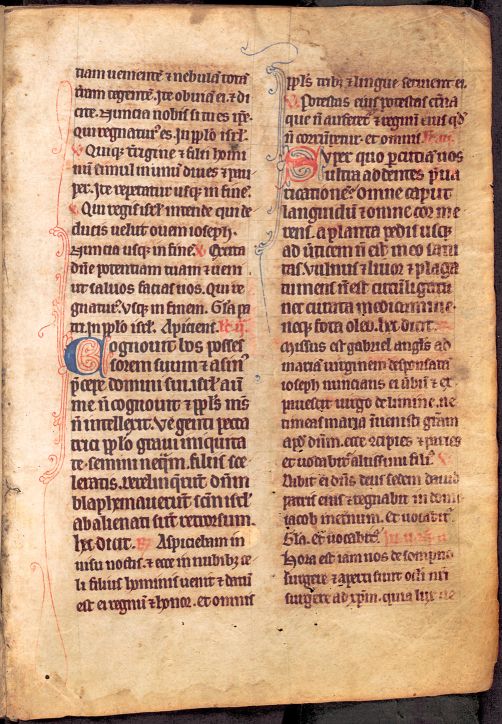 tiam uenientē ⁊ nebulā totā
t̄ram tegentē. Ite obuiā ei. ⁊ di
cite. Nuncia nobis si tu es ip̄e.
qui regnatur᷒ es. In pp̄lo isrl̄.
V Quiq; t̄rigine ⁊ filii homi
nū simul in unū diues ⁊ pau
per. Ite repetatur usq; in fine.
V Qui regis isrl̄ intende qui de
ducis uelut ouem ioseph.
Nuncia usq; in fine. V Excita
dn̄e potentiam tuam ⁊ ueni
ut saluos facias nos. Qui re
gnatur᷒. Vsq; in finem. Gl̄a pa
tri. In pp̄lo isrl̄. Apiciens.
Cognouit bos posses
sorem suum ⁊ asin᷒
p̄sepe domini sui. isrl̄ aū
me n̄ cognouit ⁊ pp̄ls m̄s
n̄ intellexit. Ve genti pecca
trici pp̄lo graui iniquita
te. semini neq̄m. filiis sce
leratis. Dereliquerūt dn̄m
blasphemauerūt sc̄m isrl̄
abalienati sūt retrorsum.
hec dicit. R Aspiciebam in
uisu noctis. ⁊ ecce in nubib; ce
li filius hominis uenit ⁊ datū
est ei regnū ⁊ honor. et omnis
pp̄ls trib; ⁊ lingue seruient ei.
V Potestas eius potestas et̄na
que n̄ auferet̄ ⁊ regnū eius qd̄
n̄ corrūpetur. et omnis.
Super quo p̄cutiā uos
ultra addentes p̄ua
ricationē? Omne caput
languidū ⁊ omne cor me
rens. a planta pedis usq;
ad ūticem n̄ est in eo sani
tas. Vulnus ⁊ liuor ⁊ plaga
tumens n̄ est circūligata
nec curata medicamine.
neq; fota oleo. hec dicit.
Missus est gabriel angl̄s ad
mariā uirginem desponsatā
ioseph nuncians ei ūbū ⁊ ex
pauescit uirgo de lumine. ne
timeas maria īuenisti grām
apd̄ dūm. ecce cōcipies ⁊ paries
et uocabit̄ altissimi fili᷒. V
Dabit ei dn̄s deus sedem dauid
patris eius ⁊ regnabit in domo
iacob ineternū. Et uocabit̄
Gl̄a. Et uocabit̄.
Hora est iam nos de sompno
surgere ⁊ aperti sunt oculi nr̄i
surgere ad xp̄m. quia lux ue